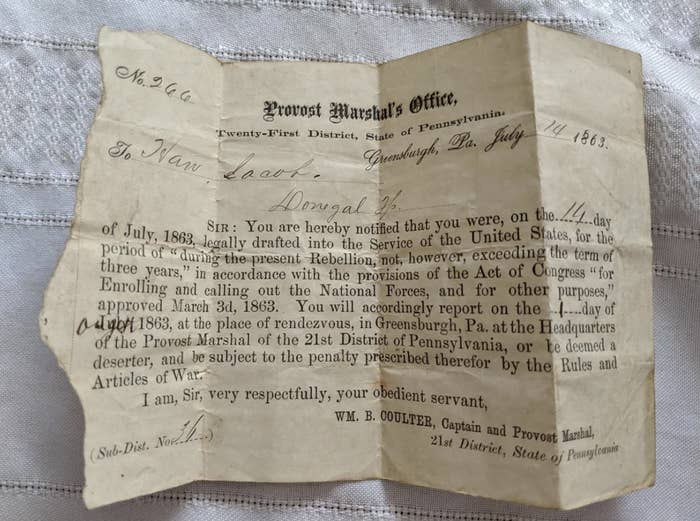 No. 266
Provost Marshal's Office,
Twenty-First District, State of Pennsylvania.
Greensburgh, Pa. July 14 1863.
To Haw, Jacob.
Donegal Tp.
SIR: You are hereby notified that you were, on the 14 day
of July, 1863, legally drafted into the Service of the United States, for the
period of "during the present Rebellion, not, however, exceeding the term of
three years," in accordance with the provisions of the Act of Congress "for
Enrolling and calling out the National Forces, and for other purposes,"
approved March 3d, 1863. You will accordingly report on the 1 day of
July 1863, at the place of rendezvous, in Greensburgh, Pa. at the Headquarters
of the Provost Marshal of the 21st District of Pennsylvania, or be deemed a
deserter, and be subject to the penalty prescribed therefor by the Rules and
Articles of War.
I am, Sir, very respectfully, your obedient servant,
WM. B. COULTER, Captain and Provost Marshal,
21st District, State of Pennsylvania
(Sub-Dist. No. )